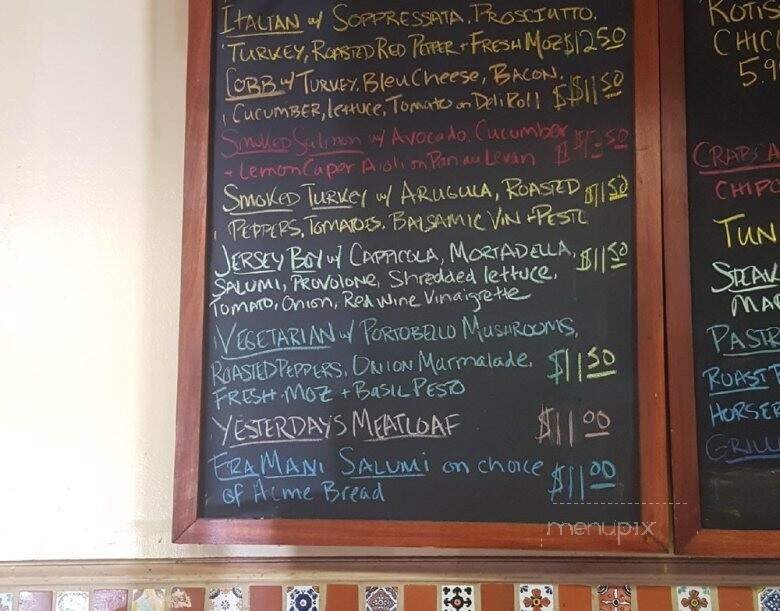 ITALIAN w/ SOPPRESSATA, PROSCIUTTO,
TURKEY, ROASTED RED PEPPER + FRESH MOZ $12.50
COBB w/ TURKEY, Bleu Cheese, BACON,
CUCUMBER, lettuce, Tomato on Deli Roll $11.50
Smoked Salmon w/ Avocado, Cucumber
+ Lemon Caper Aioli on Pan au Levan
SMOKED TURKEY w/ ARUGULA, ROASTED $11.50
PEPPERS, TOMATOES, BALSAMIC VIN + PESTO
JERSEY BOY w/ CAPPICOLA, MORTADELLA, $11.50
SALUMI, PROVOLONE, Shredded lettuce,
Tomato, Onion, Red Wine Vinaigrette
VEGETARIAN w/ PORTOBELLO MUSHROOMS,
ROASTED PEPPERS, ONION Marmalade, $11.50
FRESH MOZ + BASIL PESTO
YESTERDAY'S MEATLOAF $11.00
FRA'MANI SALUMI on choice $11.00
of Acme Bread
KOTIS
CHIC
5.9
CRAB CA
CHIPO
TUN
STEAK
MA
PASTR
ROAST
HORSER
GRILL
menupix